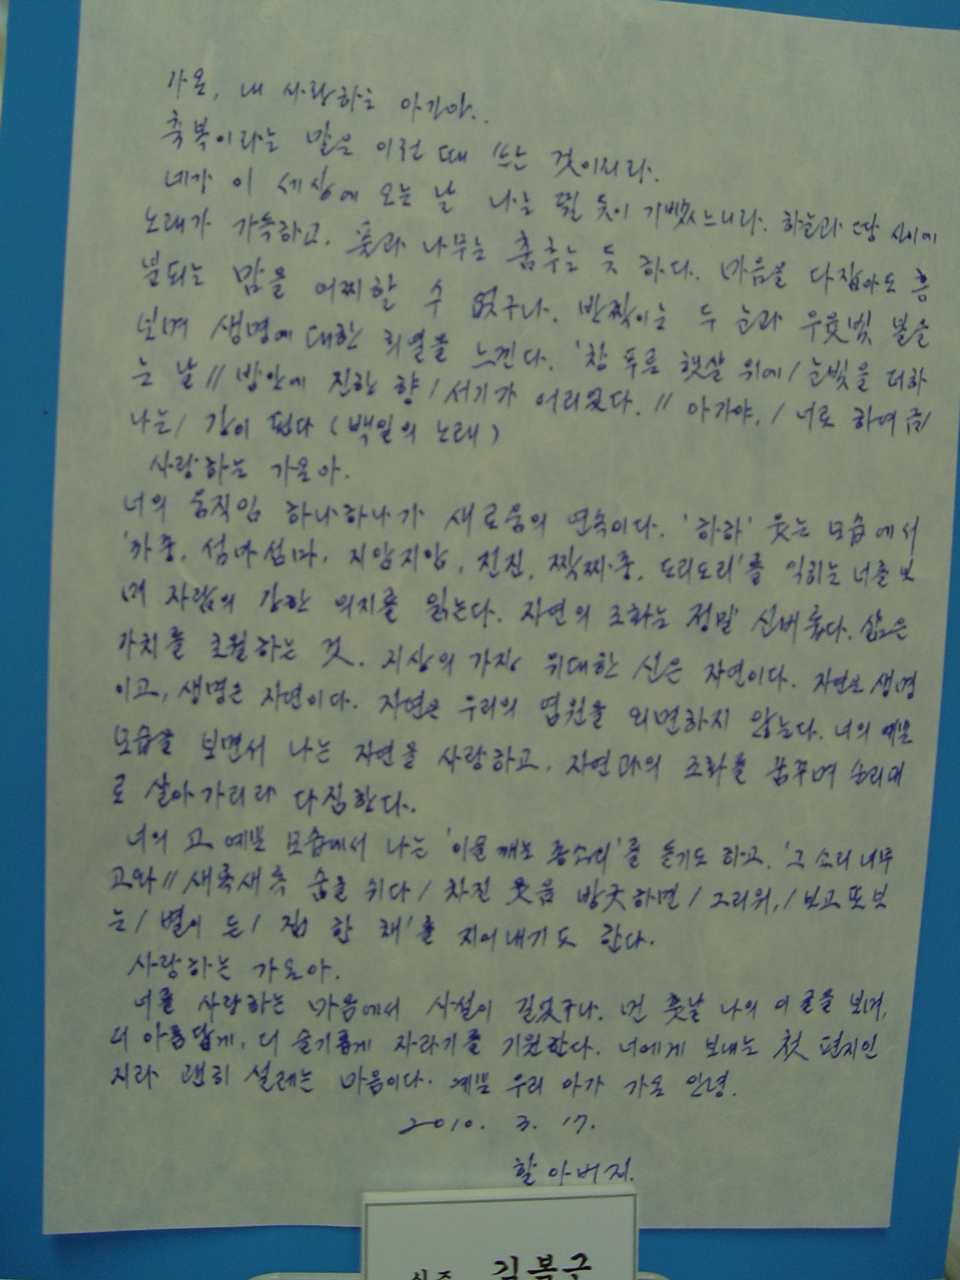 가온, 내 사랑하는 아가야..
축복이라는 말은 이런 때 쓰는 것이리라.
네가 이 세상에 오는 날 나는 뛸 듯이 기뻤느니라. 하늘과 땅 사이에
노래가 가득하고, 꽃과 나무는 춤추는 듯 하다. 마음을 다잡아도 흥
분되는 맘을 어찌할 수 없구나. 반짝이는 두 눈과 우윳빛 볼을
보며 생명에 대한 희열을 느낀다. '창 푸른 햇살 위에/ 눈빛을 더하
는 날 // 방안에 진한 향 / 서기가 어리었다. // 아가야, / 너로 하여금/
나는/ 강이 된다 (백일의 노래)
사랑하는 가온아.
너의 움직임 하나하나가 새로움의 연속이다. '하하' 웃는 모습에서
'까중, 섬마섬마, 지암지암, 전진, 짝찌중, 도리도리'를 익히는 너를 보
며 자람의 강한 의지를 읽는다. 자연의 조화는 정말 신비롭다. 삶은
가치를 초월하는 것. 지상의 가장 위대한 신은 자연이다. 자연은 생명
이고, 생명은 자연이다. 자연은 우리의 염원을 외면하지 않는다. 너의 예쁜
모습을 보면서 나는 자연을 사랑하고, 자연과의 조화를 꿈꾸며 순리대
로 살아가리라 다짐한다.
너의 고 예쁜 모습에서 나는 '이울 깨는 종소리'를 듣기도 하고, '그 소리 너무
고와 // 새록새록 숨을 쉬다 / 차진 웃음 방긋하면 / 그리워, / 보고 또 보
는/ 별이 든/ 집 한 채'를 지어내기도 한다.
사랑하는 가온아.
너를 사랑하는 마음에서 사설이 길었구나. 먼 훗날 나의 이 글을 보며,
더 아름답게, 더 슬기롭게 자라기를 기원한다. 너에게 보내는 첫 편지인
지라 괜히 설레는 마음이다. 예쁜 우리 아가 가온 안녕.
2010. 3. 17.
할아버지.